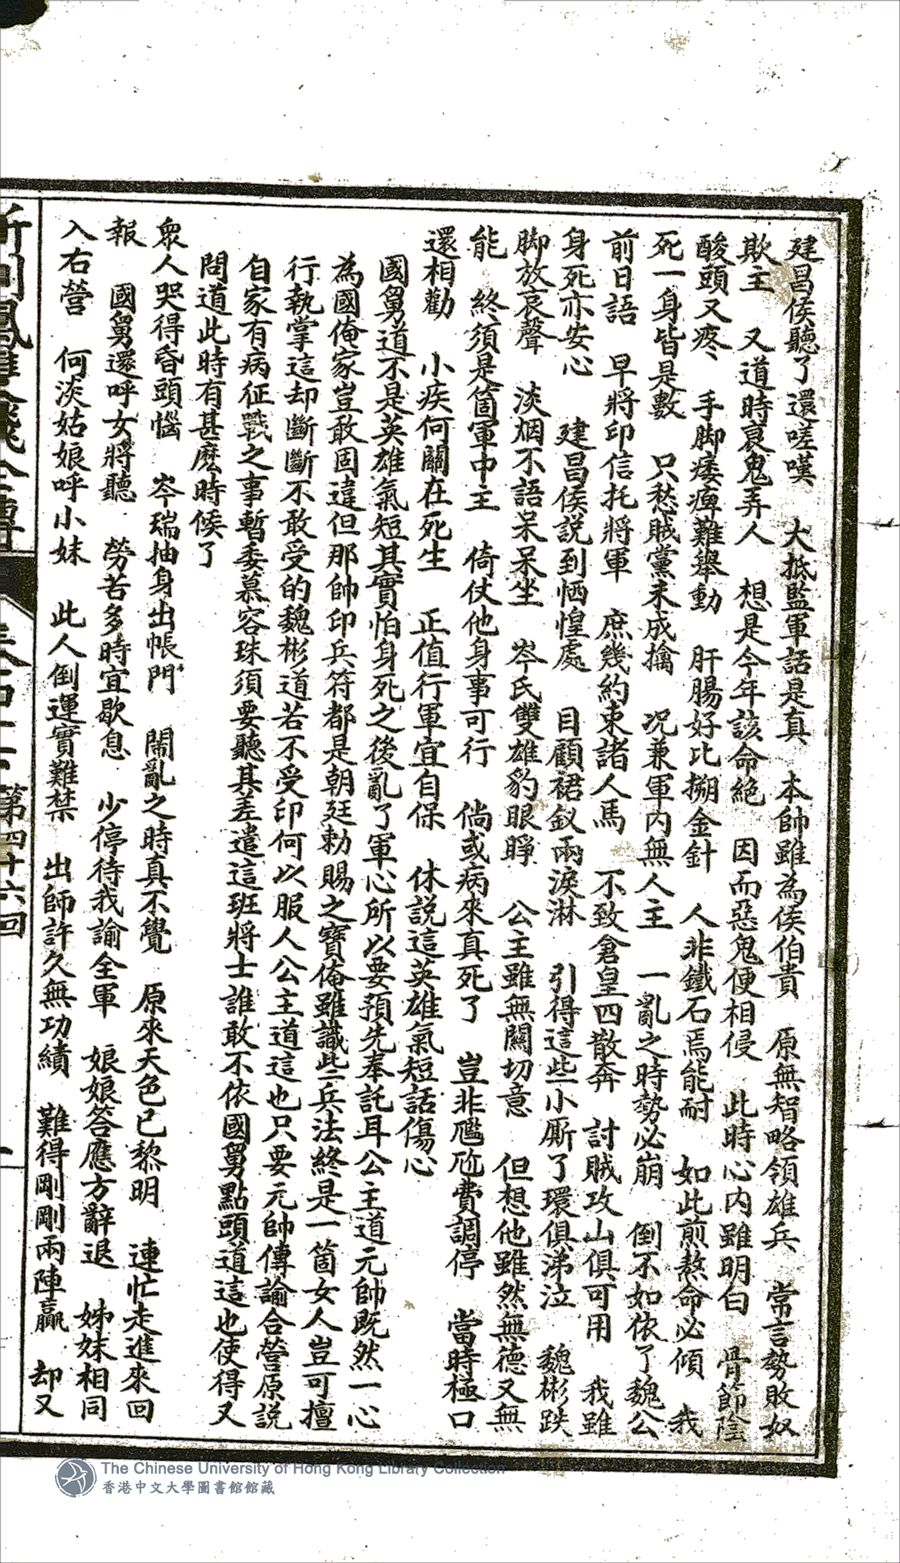 建昌侯聽了還嗟嘆　大抵監軍話是真　本帥雖為侯伯貴　原無智略領雄兵　常言勢敗奴
欺主　又道時衰鬼弄人　想是今年該命絕　因而惡鬼便相侵　此時心內雖明白　骨節陰
酸頭又疼　手脚痿痺難舉動　肝腸好比搠金針　人非鐵石焉能耐　如此煎熬命必傾　我
死一身皆是數　只愁賊黨未成擒　况兼軍內無人主　一亂之時勢必崩　倒不如依了魏公
前日語　早將印信托將軍　庶幾約束諸人馬　不致倉皇四散奔　討賊攻山俱可用　我雖
身死亦安心　建昌侯説到恓惶處　目顧裙釵兩淚淋　引得這些小厮了環俱涕泣　魏彬跌
脚放哀聲　淡烟不語呆呆坐　岑氏雙雄豹眼睜　公主雖無關切意　但想他雖然無德又無
能　終須是箇軍中主　倚仗他身事可行　倘或病來真死了　豈非尷尬費調停　當時極口
還相勸　小疾何關在死生　正值行軍宜自保　休説這英雄氣短話傷心
國舅道不是英雄氣短其實怕身死之後亂了軍心所以要預先奉託耳公主道元帥既然一心
為國俺家豈敢固違但那帥印兵符都是朝廷勅賜之寶俺雖識些兵法終是一箇女人豈可擅
行執掌這却斷斷不敢受的魏彬道若不受印何以服人公主道這也只要元帥傳諭合營原説
自家有病征戰之事暫委慕容珠須要聽其差遣這班將士誰敢不依國舅點頭道這也使得又
問道此時有甚麽時候了
衆人哭得昏頭惱　岑瑞抽身出帳門　鬧亂之時真不覺　原來天色已黎明　連忙走進來回
報　國舅還呼女將聽　勞苦多時宜歇息　少停待我諭全軍　娘娘答應方辭退　姊妹相同
入右營　何淡姑娘呼小妹　此人倒運實難禁　出師許久無功績　難得剛剛兩陣贏　却又
第四十六回
The Chinese University of Hong Kong Library Collection
香港中文大學圖書館館藏